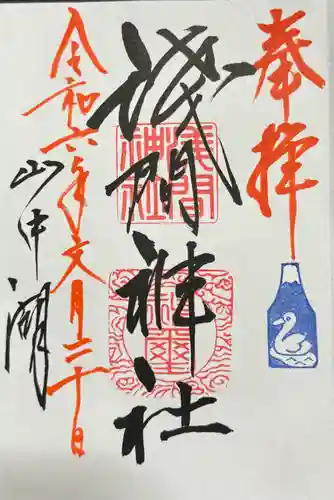 奉拝
浅間神社
浅間
神社
令和六年文月二十日
山中湖